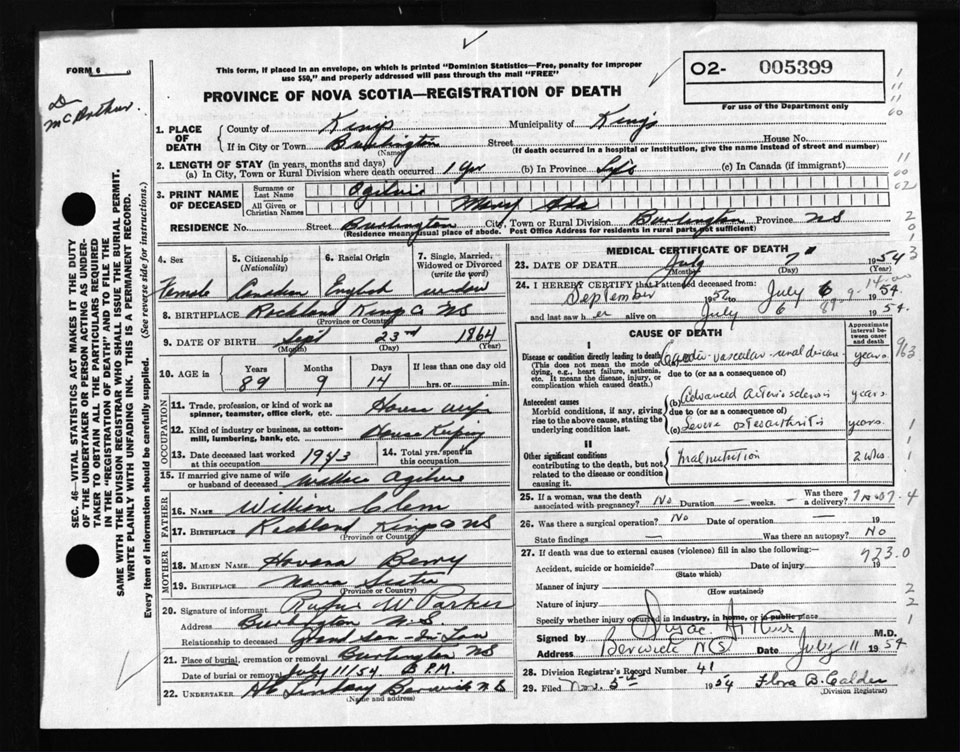 FORM 6
This form, if placed in an envelope, on which is printed "Dominion Statistics—Free, penalty for improper
use $50," and properly addressed will pass through the mail "FREE"
O2- 005399
For use of the Department only
PROVINCE OF NOVA SCOTIA—REGISTRATION OF DEATH
McArthur.
1. PLACE OF DEATH County of Kings Municipality of Kings
If in City or Town Burlington Street House No.
(Name) (If death occurred in a hospital or institution, give the name instead of street and number)
2. LENGTH OF STAY (in years, months and days)
(a) In City, Town or Rural Division where death occurred 1 yr (b) In Province Life (c) In Canada (if immigrant)
3. PRINT NAME OF DECEASED Surname or Last Name Ogilvie
All Given or Christian Names Mary Ada
RESIDENCE No. Street Burlington City, Town or Rural Division Burlington Province NS
(Residence means usual place of abode. Post Office Address for residents in rural parts not sufficient)
4. Sex Female
5. Citizenship (Nationality) Canadian
6. Racial Origin English
7. Single, Married, Widowed or Divorced (write the word) widow
8. BIRTHPLACE Rockland Kings Co NS
(Province or Country)
9. DATE OF BIRTH Sept 23rd 1864
(Month) (Day) (Year)
10. AGE in Years 89 Months 9 Days 14 If less than one day old hrs. or min.
OCCUPATION
11. Trade, profession, or kind of work as spinner, teamster, office clerk, etc. House wife
12. Kind of industry or business, as cotton-mill, lumbering, bank, etc. House Keeping
13. Date deceased last worked at this occupation 1943 14. Total yrs. spent in this occupation
15. If married give name of wife or husband of deceased Ogilvie
FATHER
16. Name William Clem
17. Birthplace Rockland Kings Co NS
(Province or Country)
MOTHER
18. MAIDEN NAME Berry
19. BIRTHPLACE Nova Scotia
(Province or Country)
20. Signature of informant Rufus W Parker
Address Burlington N.S.
Relationship to deceased Grand son-In Law
21. Place of burial, cremation or removal Burlington NS
Date of burial or removal July 11/54 P.M.
22. UNDERTAKER Lindsay Berwick N.S
(Name and address)
MEDICAL CERTIFICATE OF DEATH
23. DATE OF DEATH July 7 1954
(Month) (Day) (Year)
24. I HEREBY CERTIFY that I attended deceased from:
September 1952 to July 6 1954
and last saw her alive on July 6 1954.
CAUSE OF DEATH
Approximate interval between cause and death
I
Disease or condition directly leading to death
(This does not mean the mode of dying, e.g., heart failure, asthenia, etc. It means the disease, injury, or complication which caused death.)
(a) Cardio-vascular-renal disease years.
due to (or as a consequence of)
Antecedent causes
Morbid conditions, if any, giving rise to the above cause, stating the underlying condition last.
(b) Advanced arteriosclerosis years
due to (or as a consequence of)
(c) Severe osteoarthritis years
II
Other significant conditions
contributing to the death, but not related to the disease or condition causing it
malnutrition 2 wks.
25. If a woman, was the death associated with pregnancy? No Duration – weeks. – Was there a delivery?
26. Was there a surgical operation? No Date of operation — 19
State findings — Was there an autopsy? No
27. If death was due to external causes (violence) fill in also the following:—
Accident, suicide or homicide? Date of injury 19
(State which)
Manner of injury
(How sustained)
Nature of injury
Specify whether injury occurred in industry, in home, or in public place
Signed by M.D.
Address Berwick NS Date July 11 1954
28. Division Registrar's Record Number 41
29. Filed Nov. 5th 1954 Flora B. Calder
(Division Registrar)
963
723.0
SEC. 46—VITAL STATISTICS ACT MAKES IT THE DUTY
OF THE UNDERTAKER OR PERSON ACTING AS UNDER-
TAKER TO OBTAIN ALL THE PARTICULARS REQUIRED
IN THE "REGISTRATION OF DEATH" AND TO FILE THE
SAME WITH THE DIVISION REGISTRAR WHO SHALL ISSUE THE BURIAL PERMIT.
WRITE PLAINLY WITH UNFADING INK. THIS IS A PERMANENT RECORD.
Every item of information should be carefully supplied. (See reverse side for instructions.)